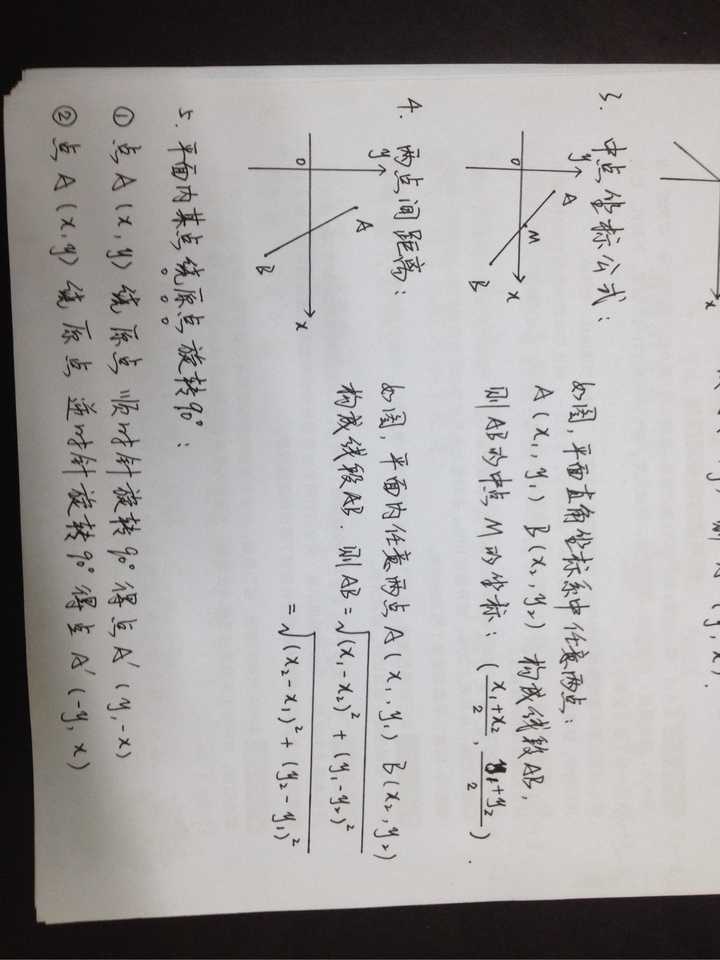 (y, x).
x
3. 中点坐标公式:
y
A
O
M
x
B
如图,平面直角坐标系中任意两点:
A(x₁, y₁) B(x₂, y₂) 构成线段AB,
则AB的中点M的坐标: (\frac{x₁+x₂}{2}, \frac{y₁+y₂}{2}).
4. 两点间距离:
y
A
O
x
B
如图,平面内任意两点A(x₁, y₁) B(x₂, y₂)
构成线段AB. 则AB=√((x₁-x₂)²+(y₁-y₂)²)
=√((x₂-x₁)²+(y₂-y₁)²)
5. 平面内某点绕原点旋转90°:
① 点A(x,y)绕原点顺时针旋转90°得点A'(y,-x)
② 点A(x,y)绕原点逆时针旋转90°得点A'(-y,x)